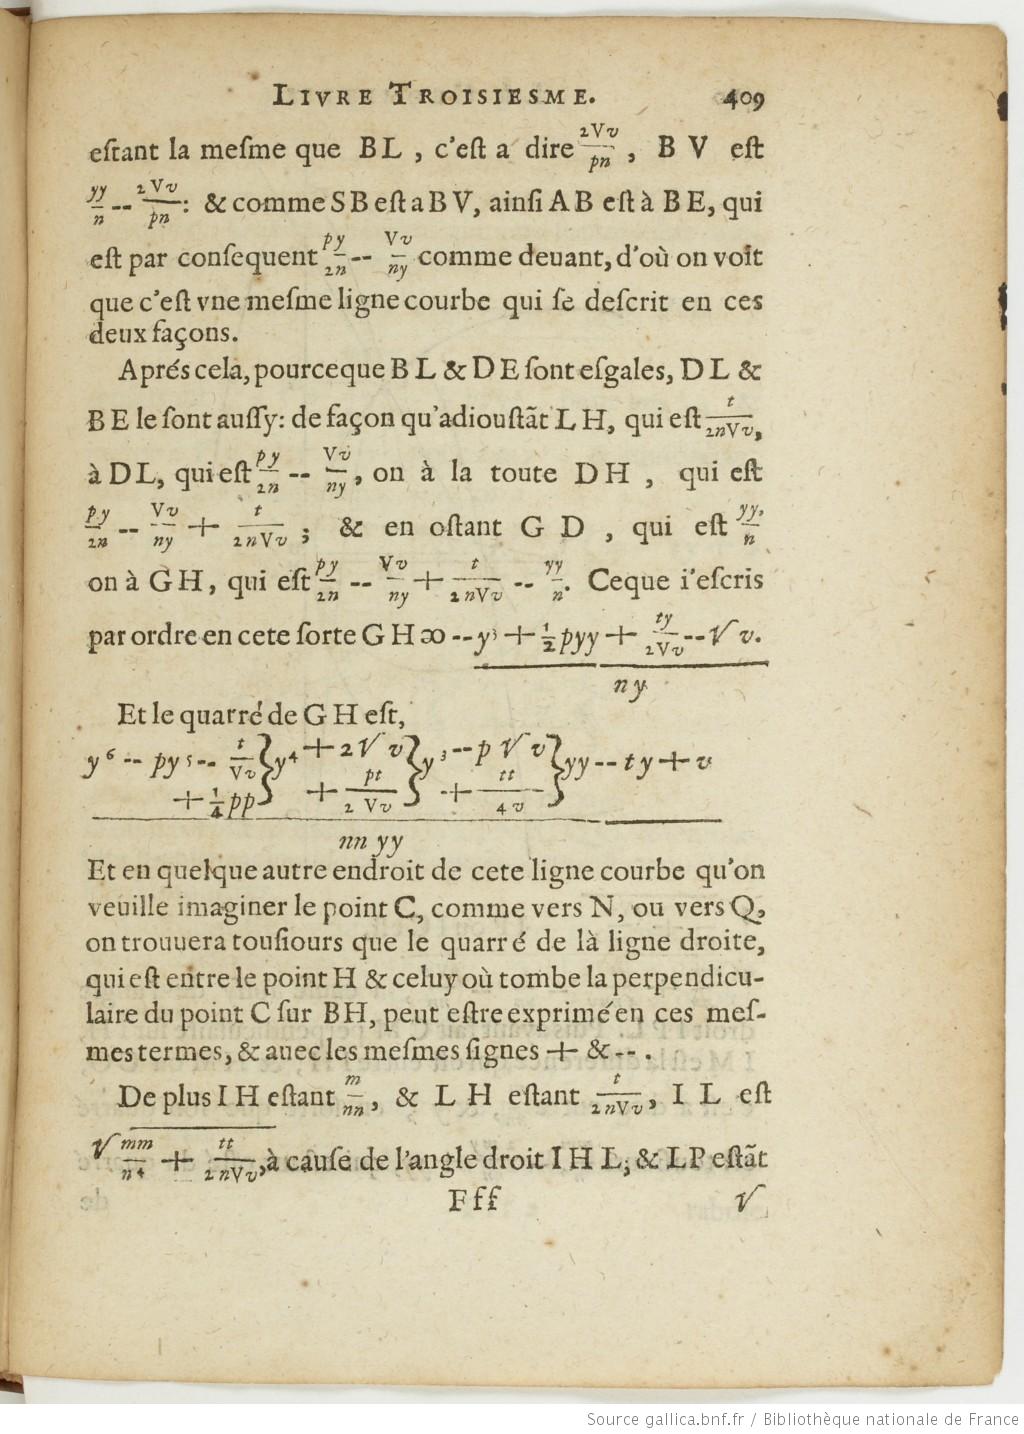 LIVRE TROISIESME. 409
estant la mesme que BL , c'est a dire 2√v/pn , B V est
yy/n -- 2√v/pn : & comme SB est a BV, ainsi AB est à BE, qui
est par consequent py/2n -- √v/ny comme deuant, d'où on voit
que c'est vne mesme ligne courbe qui se descrit en ces
deux façons.
Aprés cela, pourceque BL & DE sont esgales, DL &
BE le sont aussy: de façon qu'adioustãt LH, qui est t/2n√v,
à DL, qui est py/2n -- √v/ny, on à la toute DH , qui est
py/2n -- √v/ny + t/2n√v ; & en ostant G D , qui est yy/n,
on à GH, qui est py/2n -- √v/ny + t/2n√v -- yy/n. Ceque i'escris
par ordre en cete sorte GH ꝏ -- y³ + ½pyy + ty/2√v -- √v.
ny
Et le quarré de GH est,
y⁶ -- py⁵ -- t/√v } y⁴ + 2√v } y³ -- p√v } yy -- ty + v
+ ¼pp } + pt/2√v } + tt/4v }
nn yy
Et en quelque autre endroit de cete ligne courbe qu'on
veuille imaginer le point C, comme vers N, ou vers Q,
on trouuera tousiours que le quarré de là ligne droite,
qui est entre le point H & celuy où tombe la perpendicu-
laire du point C sur BH, peut estre exprimé en ces mes-
mes termes, & auec les mesmes signes + & -- .
De plus IH estant m/nn, & L H estant t/2n√v, I L est
√ mm/n⁴ + tt/2n√v, à cause de l'angle droit IHL; & LP estãt
Fff √
Source gallica.bnf.fr / Bibliothèque nationale de France